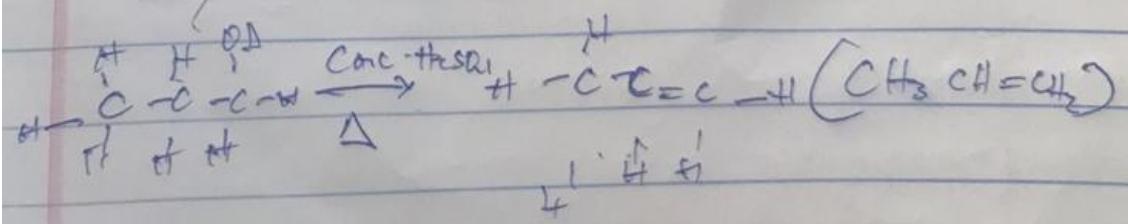 H H OH
H - C - C - C - H Conc. H2SO4 → H - C C = C - H (CH3 CH=CH2)
H H H Δ H H H
H